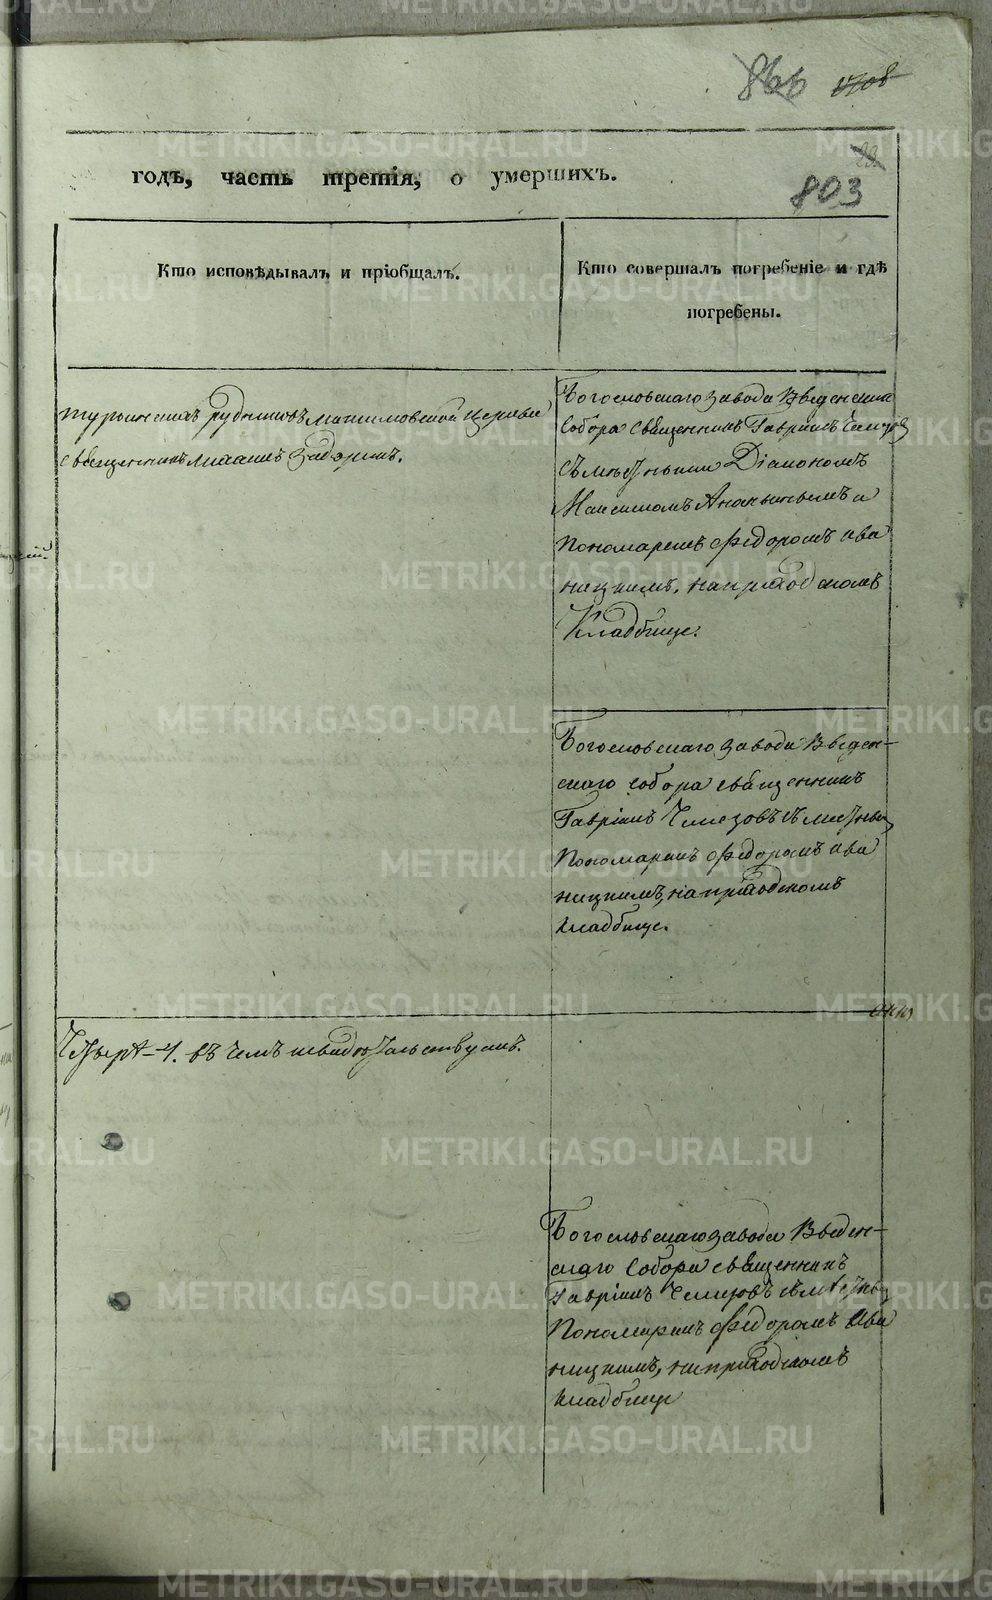 866 1708
22
803
годъ, часть третія, о умершихъ.
Кто исповѣдывалъ и пріобщалъ.
Кто совершалъ погребеніе и гдѣ
погребены.
Турьинскихъ рудниковъ Максимовской церкви
священникъ Задоринъ.
Богословскаго завода Введенскаго
собора священникъ Гавріилъ Чемезовъ
съ мѣстными Діакономъ
Максимомъ Ананьинымъ и
Пономаремъ Федоромъ Ива
ницкимъ, на приходскомъ
Кладбище.
Богословскаго завода Введен-
скаго собора священникъ
Гавріилъ Чемезовъ съ мѣстнымъ
Пономаремъ Федоромъ Ива
ницкимъ, на приходскомъ
кладбище.
Четыре-4. въ чемъ свидѣтельствуемъ.
Богословскаго завода Введен-
скаго собора священникъ
Гавріилъ Чемезовъ съ мѣстнымъ
Пономаремъ Федоромъ Ива
ницкимъ, на приходскомъ
кладбище
METRIKI.GASO-URAL.RU